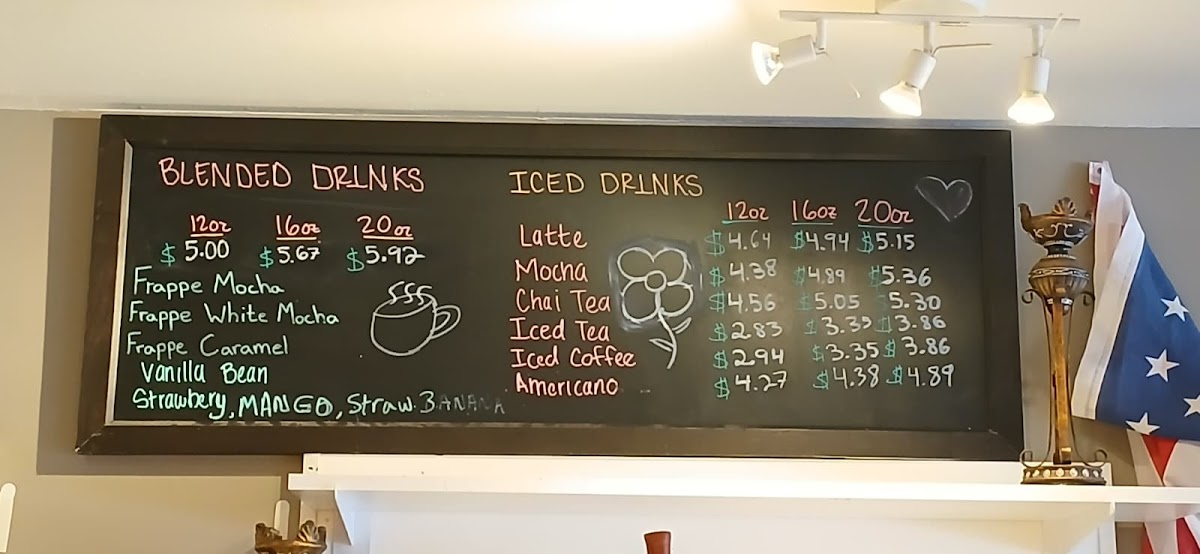 BLENDED DRINKS
12oz 16oz 20oz
$5.00 $5.67 $5.92
Frappe Mocha
Frappe White Mocha
Frappe Caramel
Vanilla Bean
Strawbery, MANGO, Straw. BANANA
ICED DRINKS
12oz 16oz 20oz
Latte $4.64 $4.94 $5.15
Mocha $4.38 $4.89 $5.36
Chai Tea $4.56 $5.05 $5.30
Iced Tea $2.83 $3.35 $3.86
Iced Coffee $2.94 $3.35 $3.86
Americano $4.27 $4.38 $4.89